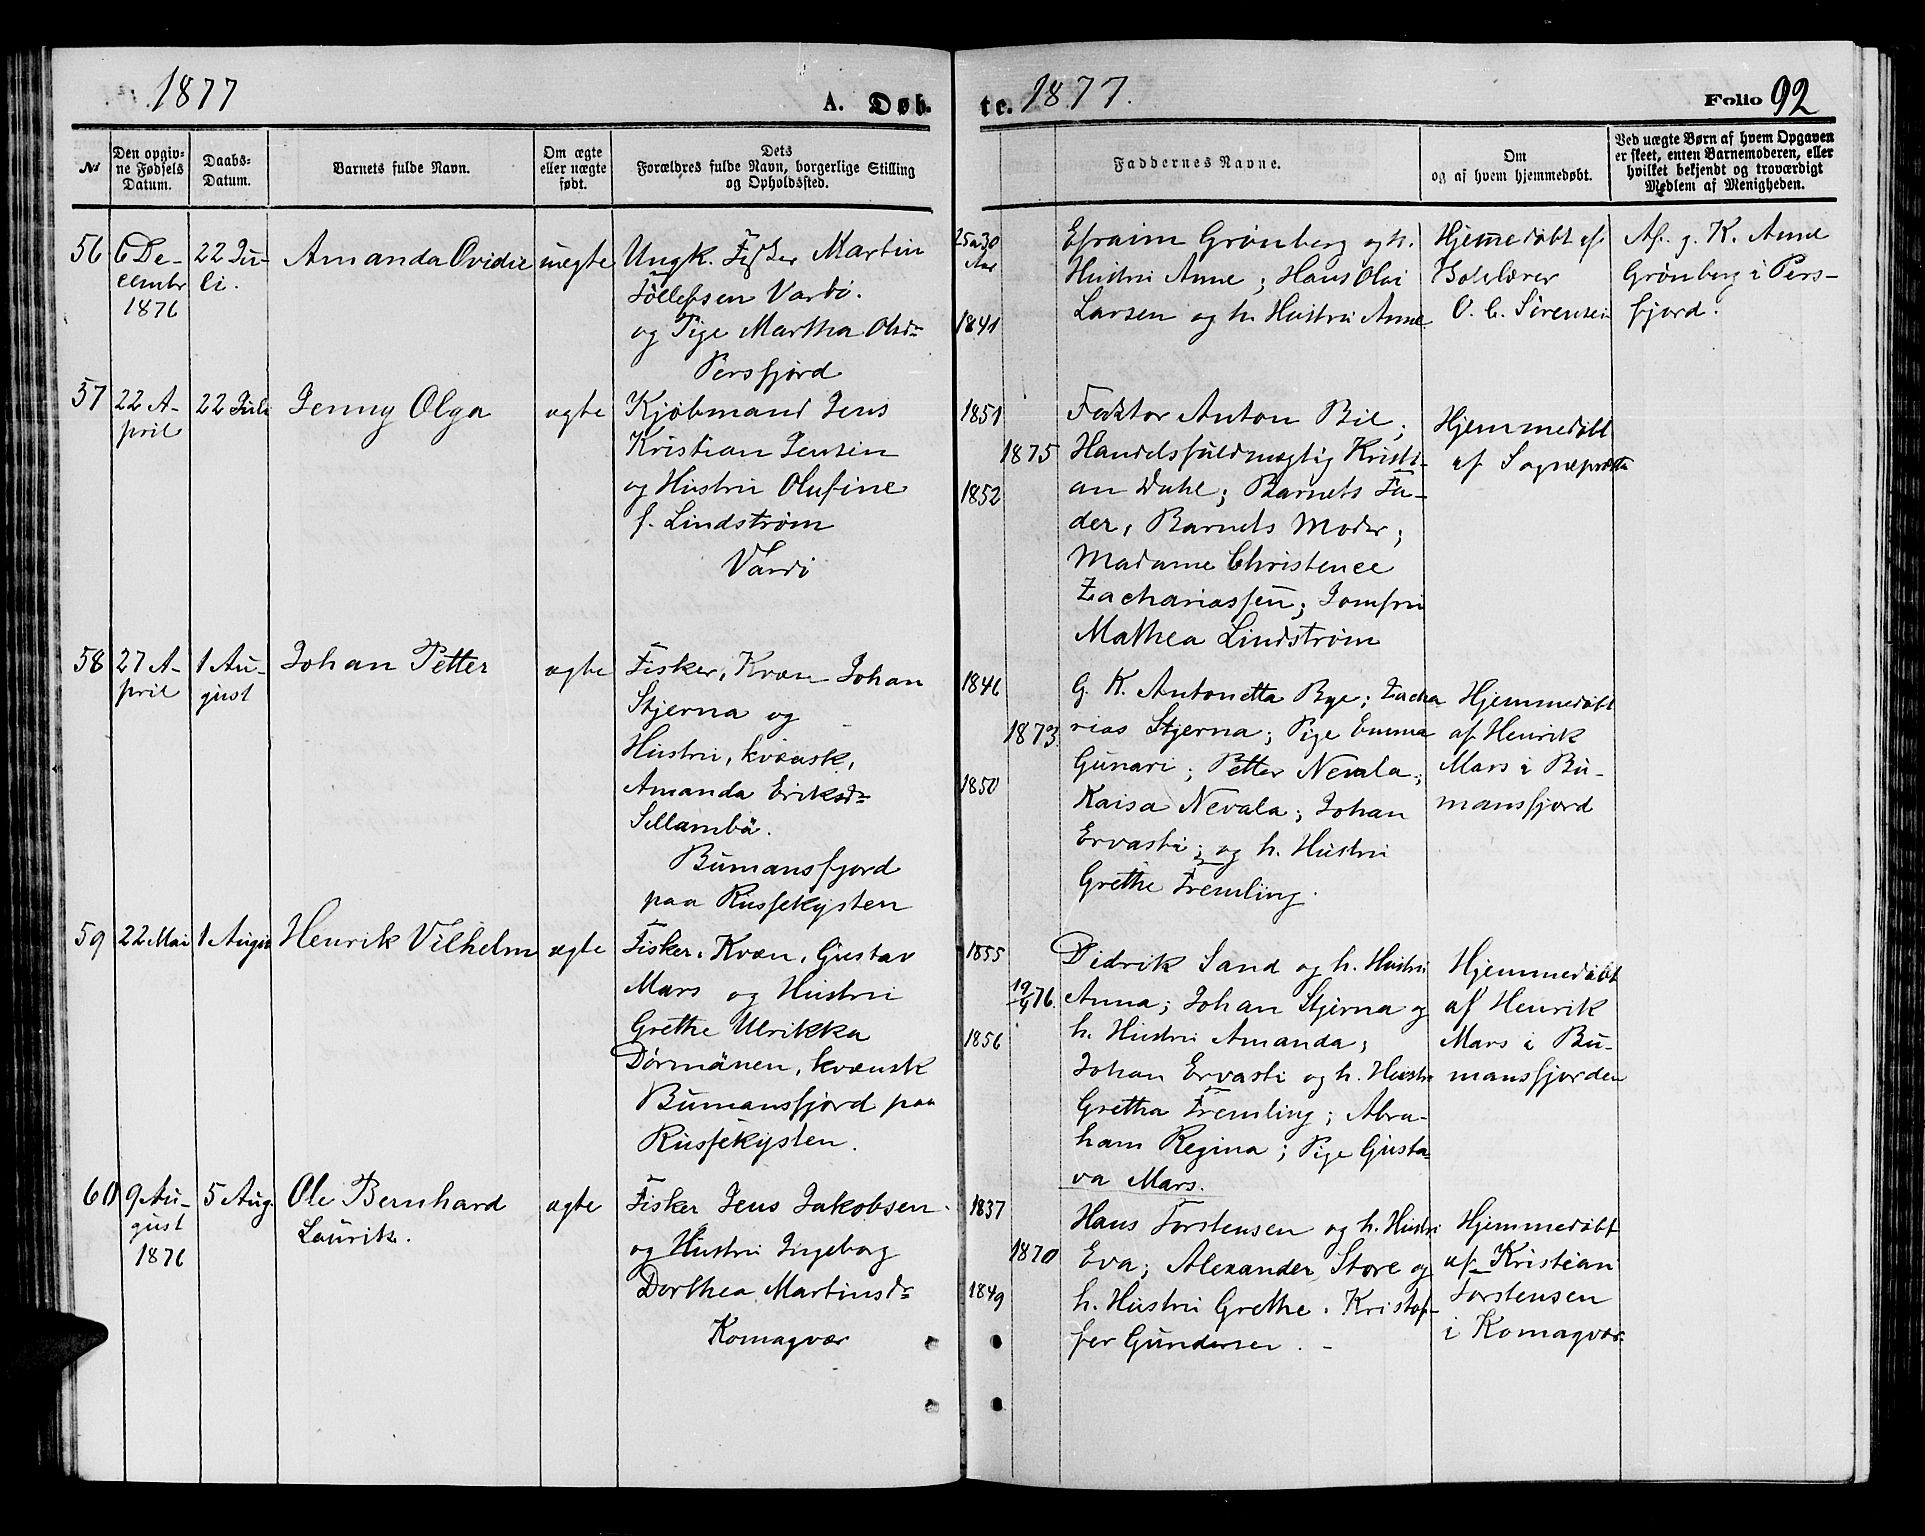 1877
A. Døb-
te. 1877.
Folio 92
No
Den opgiv-
ne Fødsels
Datum.
Daabs-
Datum.
Barnets fulde Navn.
Om ægte
eller uægte
født.
Dets
Forældres fulde Navn, borgerlige Stilling
og Opholdssted.
Faddernes Navne.
Om
og af hvem hjemmedøbt.
Ved uægte Børn af hvem Opgaven
er skeet, enten Barnemoderen, eller
hvilket bekjendt og troværdigt
Medlem af Menigheden.
56
6 De-
cembr
1876
22 Ju-
li.
Amanda Ovidie
uægte
Ungk. Fisker Martin
Tollefsen Vardö.
og Pige Martha Olsdr
Persfjord
25 a 30
Aar
1841
Efraim Grønberg og h.
Hustru Anne; Hans Olai
Larsen og h. Hustru Anne
Hjemmedøbt af
Skolelærer
O. C. Sørensen
Af g. K. Anne
Grönberg i Pers-
fjord.
57
22 A-
pril
22 Juli
Jenny Olga
ægte
Kjøbmand Jens
Kristian Jensen
og Hustru Olufine
f. Lindstrøm
Vardö
1851
1875
1852
Faktor Anton Bie;
Handelsfuldmægtig Kristi-
an Dahl; Barnets Fa-
der, Barnets Moder;
Madame Christence
Zachariassen; Jomfru
Mathea Lindstrøm
Hjemmedøbt
af Sognepræsten
58
27 A-
pril
1 Au-
gust
Johan Petter
ægte
Fisker, Kvæn Johan
Stjerna og
Hustru, kvænsk,
Amanda Eriksdr
Sellambä.
Bumansfjord
paa Russekysten
1846
1873
1850
G. K. Antonetta Bye; Zacha
rias Stjerna; Pige Emma
Gunari; Petter Nevala;
Kaisa Nevala; Johan
Ervasti; og h. Hustru
Grethe Fremling.
Hjemmedøbt
af Henrik
Mars i Bu-
mansfjord
59
22 Mai
1 August
Henrik Vilhelm
ægte
Fisker, Kvæn, Gustav
Mars og Hustru
Grethe Ulrikka
Dörmänen, kvænsk
Bumansfjord paa
Russekysten.
1855
19/9 76.
1856
Didrik Sand og h. Hustru
Anna; Johan Stjerna og
h. Hustru Amanda;
Johan Ervasti og h. Hustru
Gretha Fremling; Abra-
ham Regina; Pige Gusta-
va Mars.
Hjemmedøbt
af Henrik
Mars i Bu-
mansfjorden
60
9 Au-
gust
1876
5 Aug.
Ole Bernhard
Laurik.
ægte
Fisker Jens Jakobsen
og Hustru Ingeborg
Dorthea Martinsdr
Komagvær
1837
1870
1849
Hans Torstensen og h. Hustru
Eva; Alexander Store og
h. Hustru Grethe. Kristof-
fer Gundersen. -
Hjemmedøbt
af Kristian
Torstensen
i Komagvær.